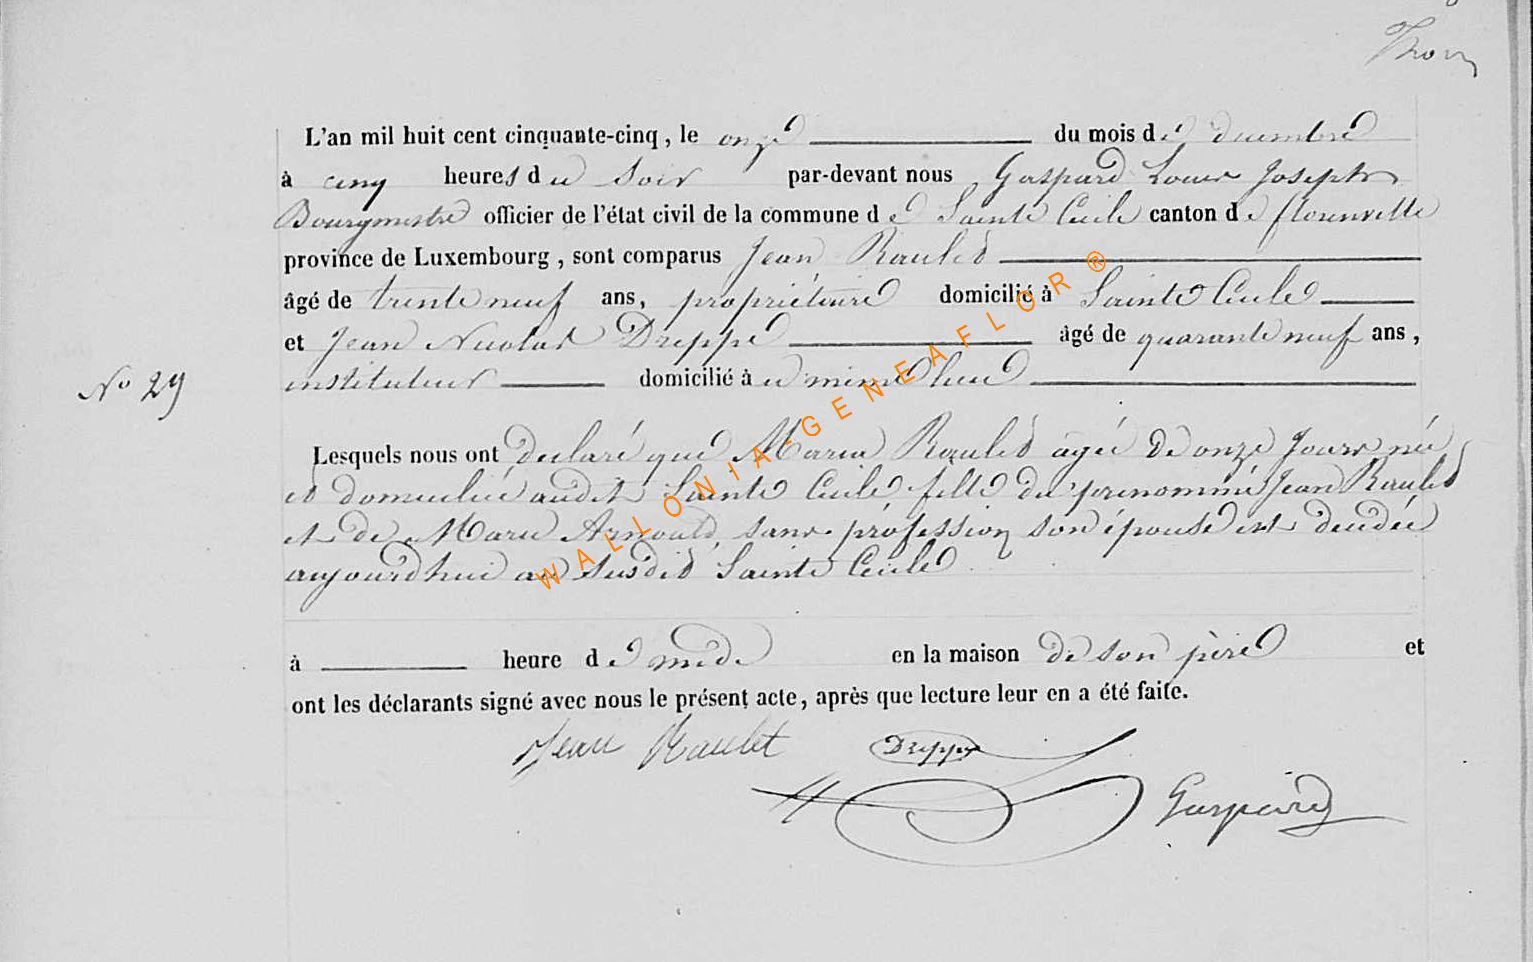 Thorn
L'an mil huit cent cinquante-cinq, le onze du mois de decembre
à cinq heures du soir par-devant nous Gaspard Louis Joseph
Bourgmestre officier de l'état civil de la commune de Sainte Cecile canton de florenville
province de Luxembourg, sont comparus Jean Raulet
âgé de trente neuf ans, propriétaire domicilié à Sainte Cecile
et Jean Nicolas Dreppe âgé de quarante neuf ans,
instituteur domicilié à u même lieu
No 29
Lesquels nous ont declaré que Maria Raulet agée de onze jours née
et domiciliée audit Sainte Cecile fille du prenommé Jean Raulet
et de Marie Arnould, sans profession son épouse est décédée
aujourdhui au susdit Sainte Cecile
à heure de midi en la maison de son père et
ont les déclarants signé avec nous le présent acte, après que lecture leur en a été faite.
Jean Raulet Dreppe
Gaspard
WALLONIA-GENEAFLOR ®